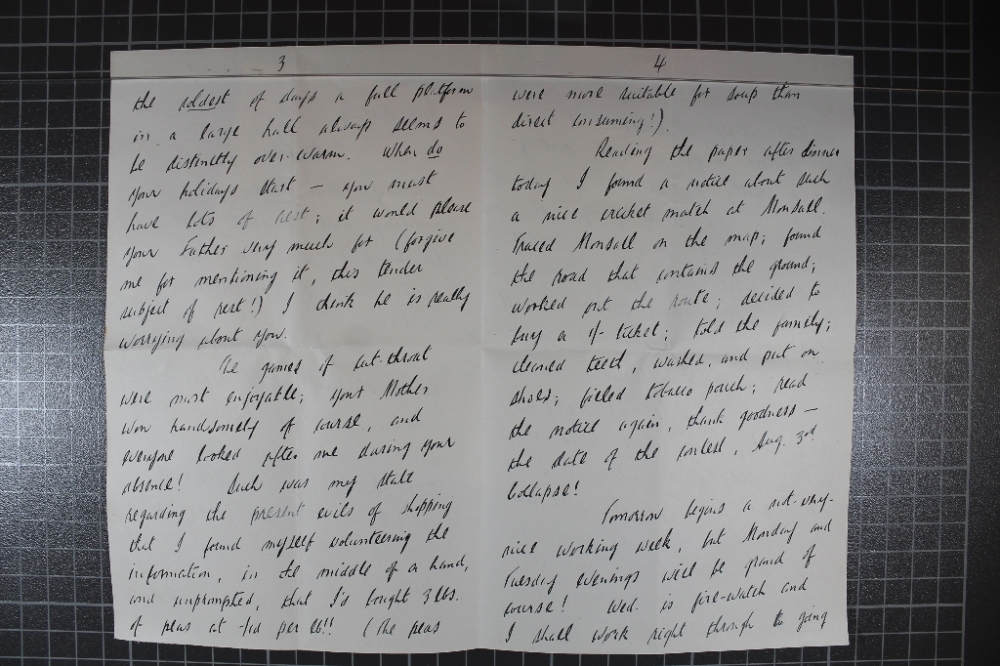 3
the coldest of days a full platform
in a large hall always seems to
be distinctly over-warm. When do
your holidays start — you must
have lots of rest; it would please
your Father very much for (forgive
me for mentioning it, this tender
subject of rest!) I think he is really
worrying about you.
The games of cut-throat
were most enjoyable; your Mother
won handsomely of course, and
everyone looked after me during your
absence! Such was my state
regarding the present evils of shopping
that I found myself volunteering the
information, in the middle of a hand,
and unprompted, that I'd bought 3 lbs.
of peas at per lb!! (The peas
4
were more suitable for soup than
direct consuming!).
Reading the paper after dinner
today I found a notice about such
a nice cricket match at Monsall.
Traced Monsall on the map; found
the road that contains the ground;
worked out the route; decided to
buy a 1/- ticket; told the family;
cleaned teeth, washed, and put on
shoes; filled tobacco pouch; read
the notice again, thank goodness —
the date of the contest, Aug. 3rd
Collapse!
Tomorrow begins a not-very-
nice working week, but Monday and
Tuesday evenings will be grand of
course! Wed. is fire-watch and
I shall work right through to going